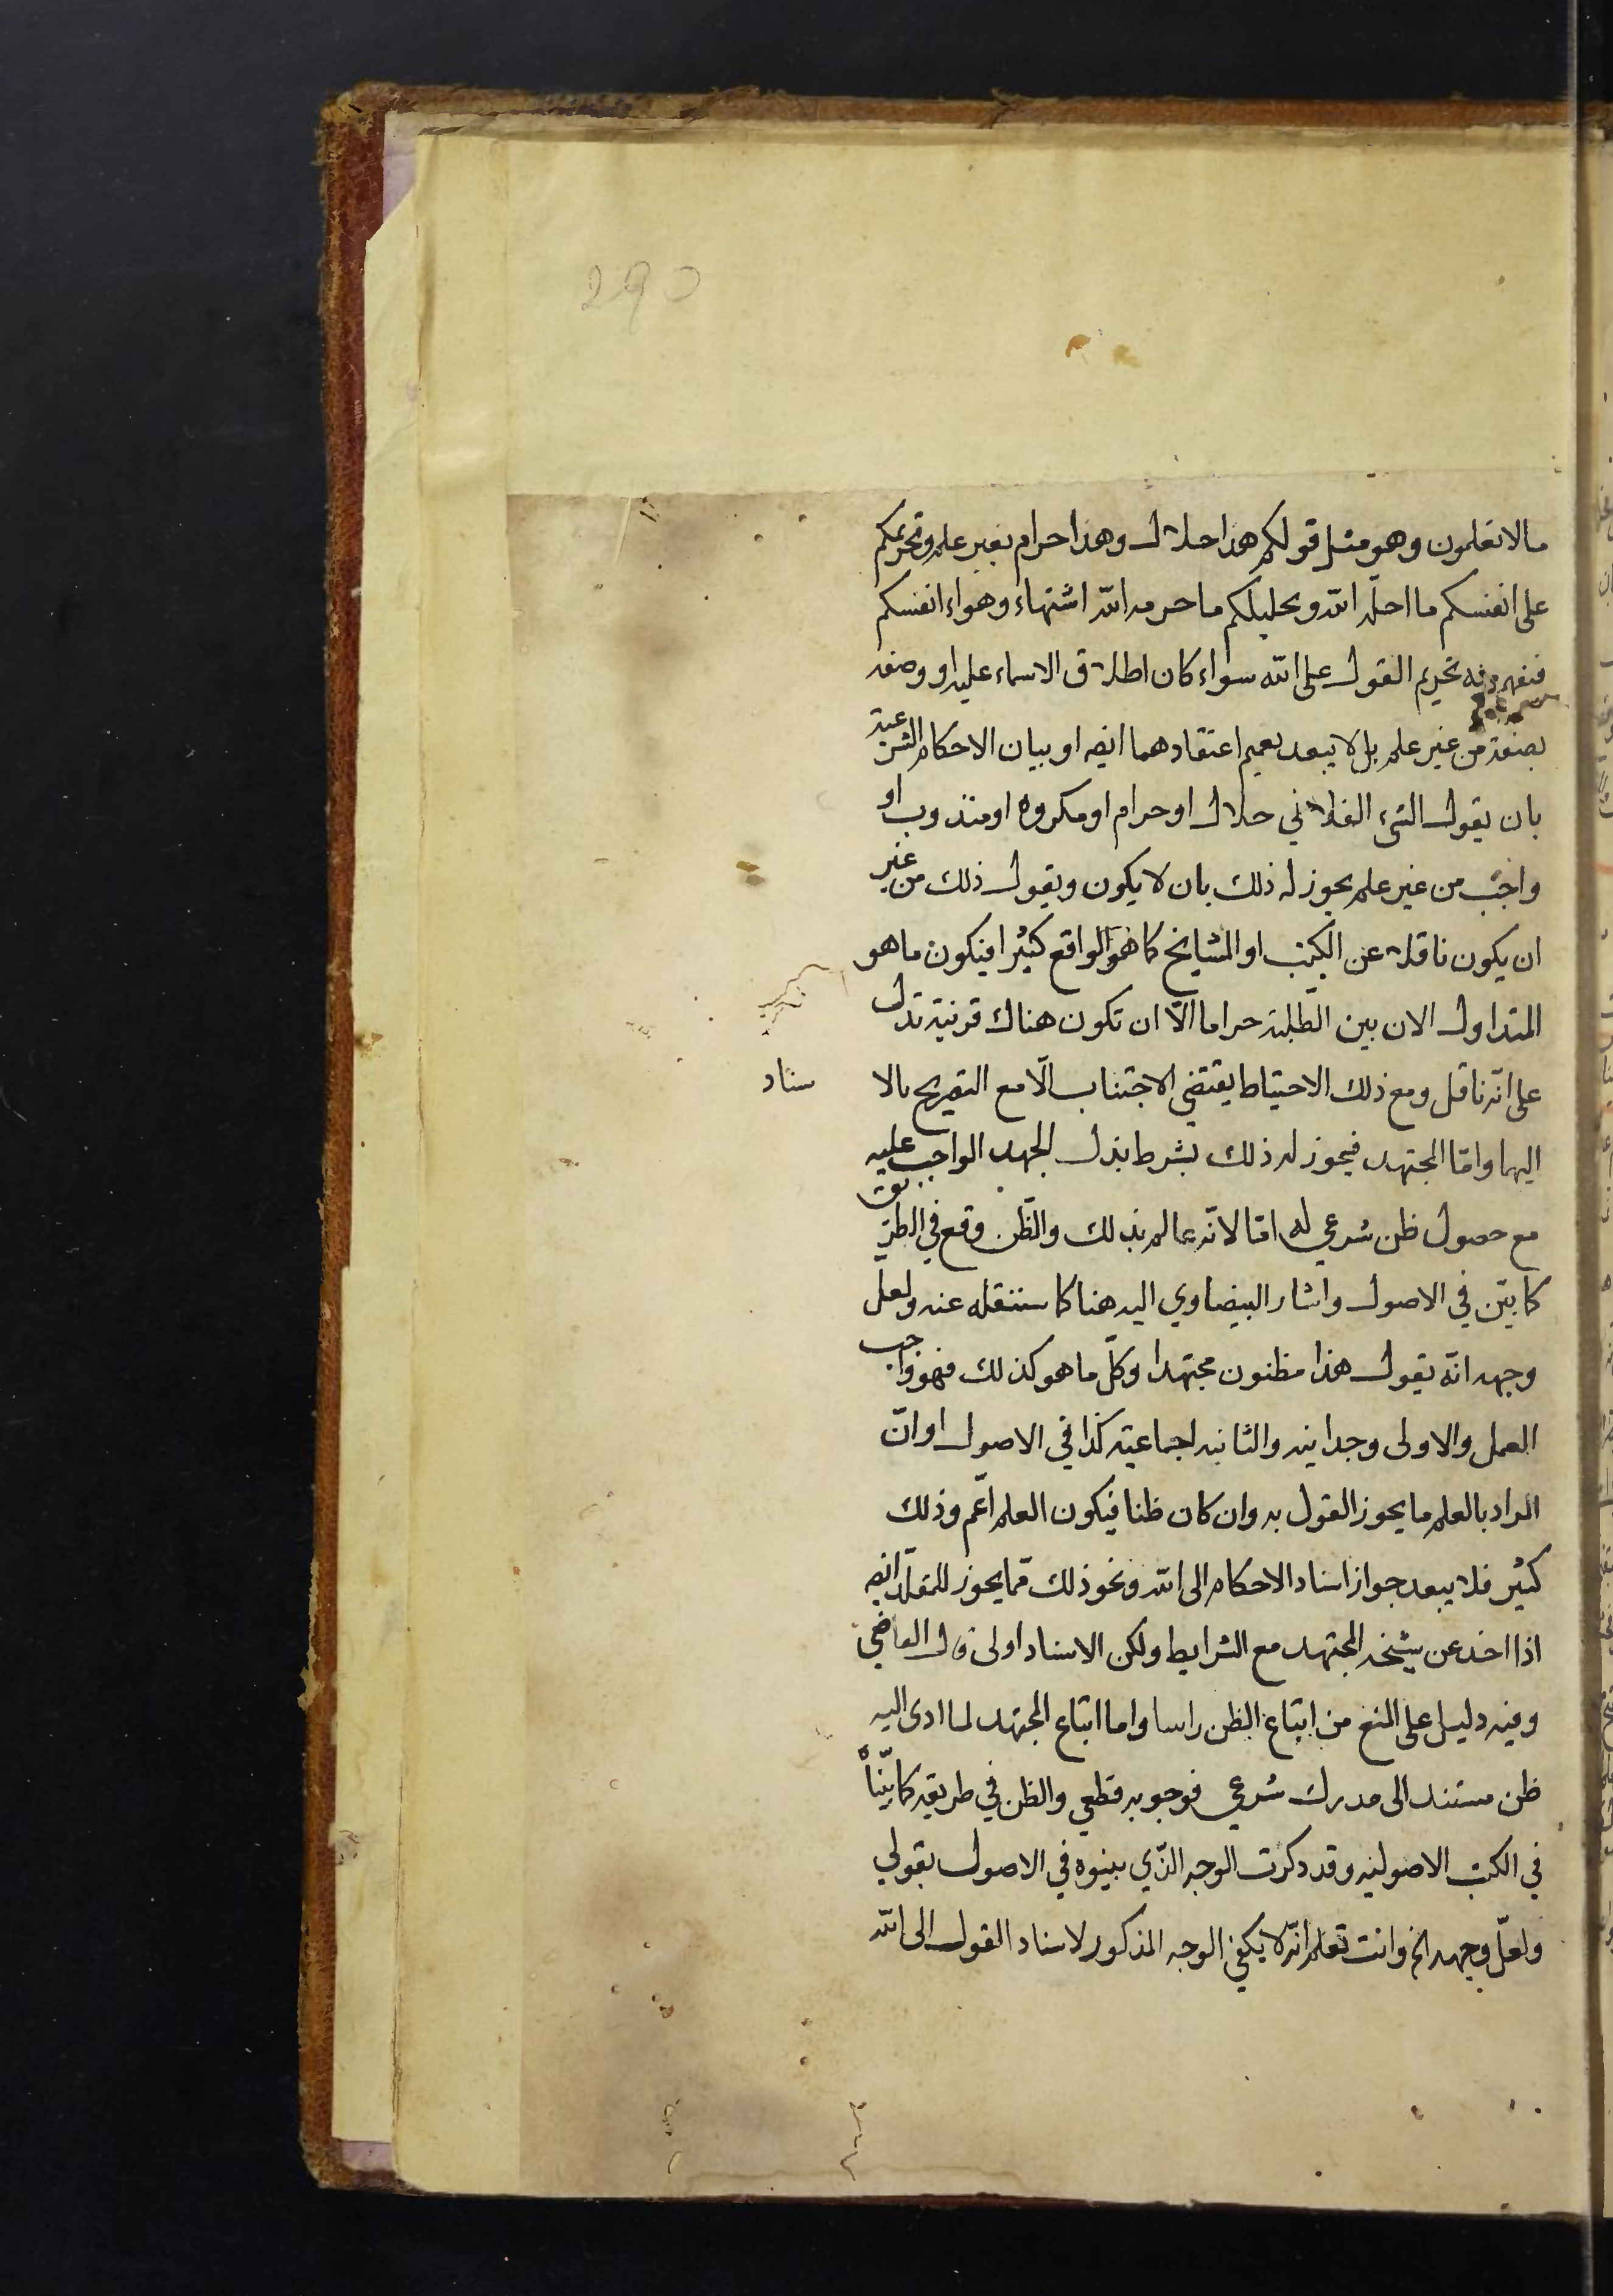 290
مالا تعلمون وهو مثل قولكم هذا حلال وهذا حرام بغير علم وتحريمكم
على انفسكم ما احلّه الله وتحليلكم ما حرمه الله اشتهاء وهواء انفسكم
فيفهم منه تحريم القول على الله سواء كان اطلاق الاسماء عليه او وصفه
بصفة من غير علم بل لا يبعد تعميم اعتقادهما ايضه او بيان الاحكام الشرعية
بان يقول الشيء الفلاني حلال او حرام او مكروه او مندوب او
واجب من غير علم يجوز له ذلك بان لا يكون ويقول ذلك من غير
ان يكون ناقلا عن الكتب او المشايخ كما هو الواقع كثيرا فيكون ما هو
المتداول الان بين الطلبة حراما الّا ان تكون هناك قرنية تدل
على انّه ناقل ومع ذلك الاحتياط يقتضي الاجتناب الّا مع التصريح بالا سناد
اليها وامّا المجتهد فيجوز له ذلك بشرط بذل الجهد الواجب عليه
مع حصول ظن شرعي له امّا لانّه عالم بذلك والظّن وقع في الطريق
كما بيّن في الاصول واشار البيضاوي اليه هنا كما سننقله عنه ولعلّ
وجهه انّه يقول هذا مظنون مجتهدا وكلّ ما هو كذلك فهو واجب
العمل والاولى وجدانيه والثانيه اجماعيّه كذا في الاصول او انّ
المراد بالعلم ما يجوز القول به وان كان ظنا فيكون العلم اعمّ وذلك
كثير فلا يبعد جواز اسناد الاحكام الى الله ونحو ذلك ممّا يجوز للمقلّد ايضه
اذا اخذ عن شيخه المجتهد مع الشرايط ولكن الاسناد اولى قال القاضي
وفيه دليل على المنع من اتباع الظن راسا واما اتباع المجتهد لما ادى اليه
ظن مستند الى مدرك شرعي فوجوبه قطعي والظن في طريقه كما بيّناه
في الكتب الاصوليه وقد ذكرت الوجه الذّي بينوه في الاصول بقولي
ولعلّ وجهه الخ وانت تعلم انّه لا يكفي الوجه المذكور لاسناد القول الى الله